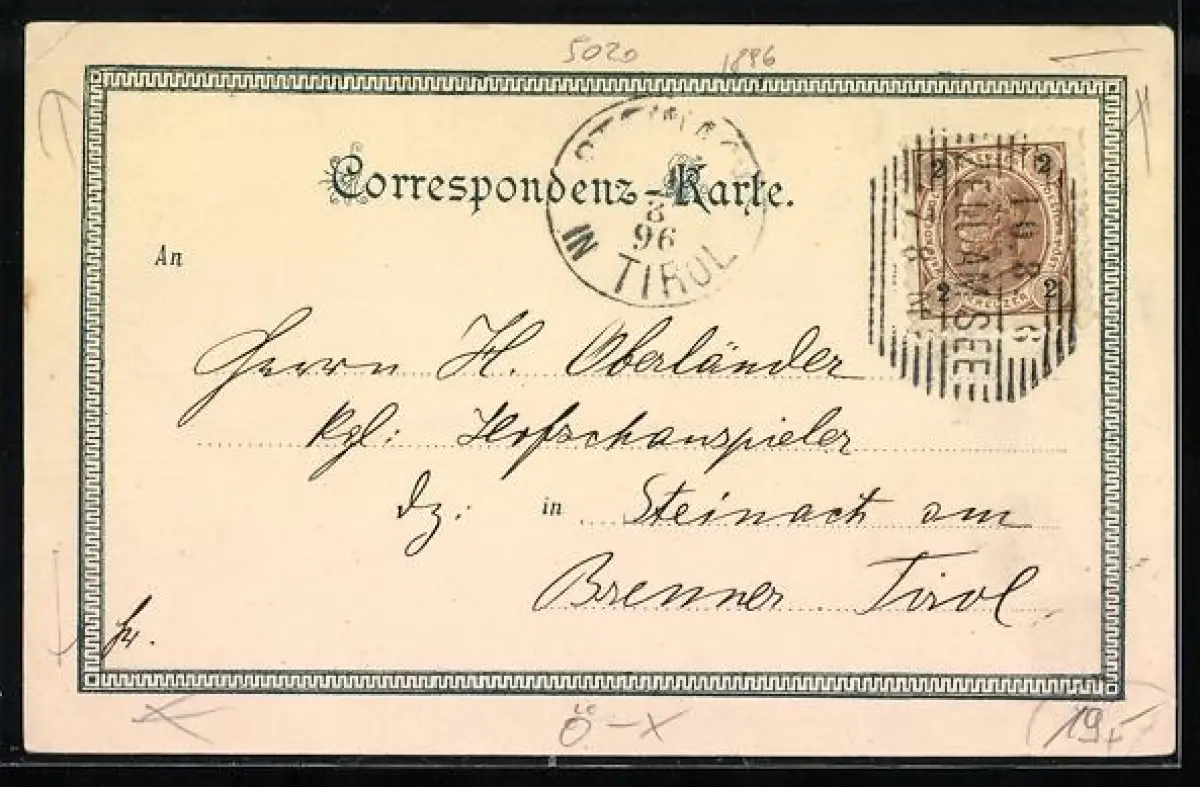 5020
1896
Correspondenz-Karte.
IN TIROL
8
96
2 2
2 KREUZER 2
19 8 96
SEE
An
Herrn H. Oberländer
kgl: Hofschauspieler
dz: in Steinach am
Brenner. Tirol
fr.
Ö-X
19.-